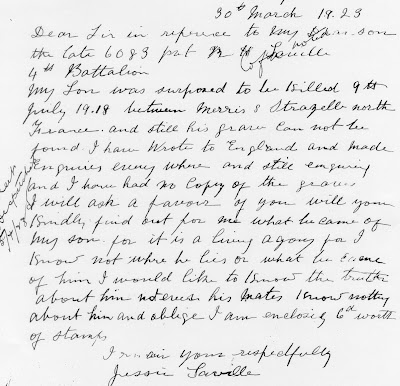 30th March 19.23
Dear Sir in reference to my son
the late 6083 pvt Saville
4th Battalion
My Son was surposed to be killed 9th
July 19.18 between Merris & Strazelle north
France. and still his grave Can not be
found I have Wrote to England and made
Enquires every where and still enquiring
and I have had no Copy of the graves
I will ask a favour of you will you
Kindly find out for me what became of
my son. for it is a living agony for I
Know not where he lies or what be
of him I would like to Know the truth
about him his Mates Know nothing
about him and oblige I am enclosing 6d worth
of stamps
I remain yours respectfully
Jessie Saville